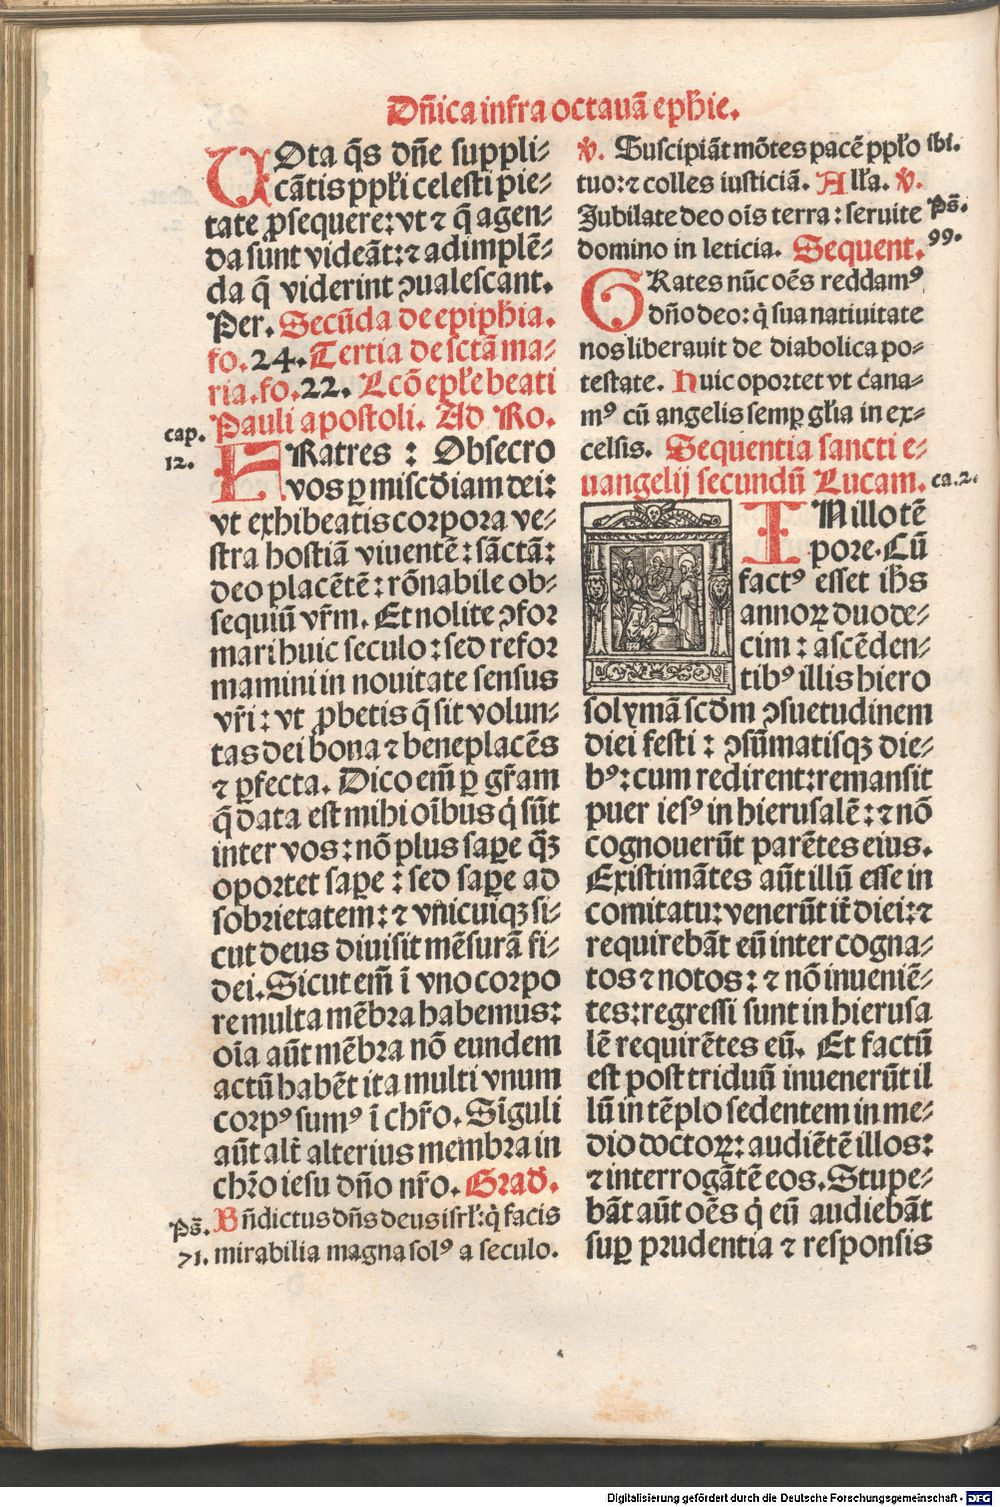 Dn̄ica infra octauā ep̄hie.
VOta q̄s dn̄e suppli⸗
cātis pp̄li celesti pie⸗
tate ꝓsequere: vt ⁊ q̄ agen⸗
da sunt videāt: ⁊ adimplē⸗
da q̄ viderint ꝯualescant.
Per. Secūda de epiphia.
fo. 24. Tertia de sctā ma⸗
ria. fo. 22. Lcō ep̄le beati
Pauli apostoli. Ad Ro.
cap.
12.
FRatres : Obsecro
vos ꝑ miscd̄iam dei:
vt exhibeatis corpora ve⸗
stra hostiā viuentē: sāctā:
deo placētē: rōnabile ob⸗
sequiū vr̄m. Et nolite ꝯfor
mari huic seculo: sed refor
mamini in nouitate sensus
vr̄i: vt ꝓbetis q̄ sit volun⸗
tas dei bona ⁊ beneplacēs
⁊ ꝑfecta. Dico em̄ ꝑ gr̄am
q̄ data est mihi oībus q̇ sūt
inter vos: nō plus saꝑe q̄ꝫ
oportet saꝑe : sed saꝑe ad
sobrietatem: ⁊ vnicuiqꝫ si⸗
cut deus diuisit mēsurā fi⸗
dei. Sicut em̄ ī vno corpo
re multa mēbra habemus:
oīa aūt mēbra nō eundem
actū habēt ita multi vnum
corpꝰ sumꝰ ī chr̄o. Sīguli
aūt alt̄ alterius membra in
chr̄o iesu dn̄o nr̄o. Grad̄.
Ps̄. Bn̄dictus dn̄s deus isrl̄: q̇ facis
71. mirabilia magna solꝰ a seculo.
v̄. Suscipiāt mōtes pacē pp̄lo ibi.
tuo: ⁊ colles iusticiā. All̄a. v̄.
Iubilate deo oīs terra: seruite Ps̄.
domino in leticia. Sequent. 99.
GRates nūc oēs reddamꝰ
dn̄o deo: q̇ sua natiuitate
nos liberauit de diabolica po⸗
testate. Huic oportet vt cana⸗
mꝰ cū angelis semꝑ gl̄ia in ex⸗
celsis. Sequentia sancti e⸗
uangelij secundū Lucam. ca. 2.
IN illo tē
pore. Cū
factꝰ esset ih̄s
annoꝝ duode⸗
cim : ascēden⸗
tibꝰ illis hiero
solymā scd̄m ꝯsuetudinem
diei festi : ꝯsūmatisqꝫ die⸗
bꝰ: cum redirent: remansit
puer iesꝰ in hierusalē: ⁊ nō
cognouerūt parētes eius.
Existimātes aūt illū esse in
comitatu: venerūt it̄ diei: ⁊
requirebāt eū inter cogna⸗
tos ⁊ notos: ⁊ nō inueniē⸗
tes: regressi sunt in hierusa
lē requirētes eū. Et factū
est post triduū inuenerūt il
lū in tēplo sedentem in me⸗
dio doctoꝝ: audiētē illos:
⁊ interrogātē eos. Stupe⸗
bāt aūt oēs q̇ eū audiebāt
suꝑ prudentia ⁊ responsis
Digitalisierung gefördert durch die Deutsche Forschungsgemeinschaft - DFG